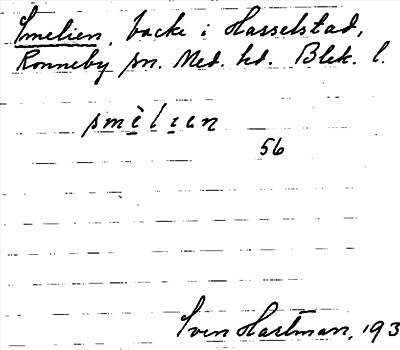 Smelien, backe i Hasselstad,
Ronneby sn. Med. hd. Blek. l.
smèlıɛn
56
Sven Hartman, 193